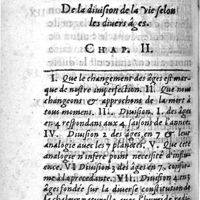 De la diuision de la Vie selon
les diuers âges.
CHAP. II.
I. Que le changement des âges est mar-
que de nostre imperfection. II. Que nous
changeons & approchons de la mort à
tous momens. III. Diuision. I. des âges
en 4 respondans aux 4 saisons de l'année.
IV. Diuision 2 des âges en 7 & leur
analogie auec les 7 planetes. V. Que cette
analogie n'infere point necessité d'influ-
ence. VI Diuision 3 des âges en 7, confir-
me à la precedante. VII. Diuision 4 en
âges fondée sur la diuerse constitution de
la chaleur naturelle auec l'humide